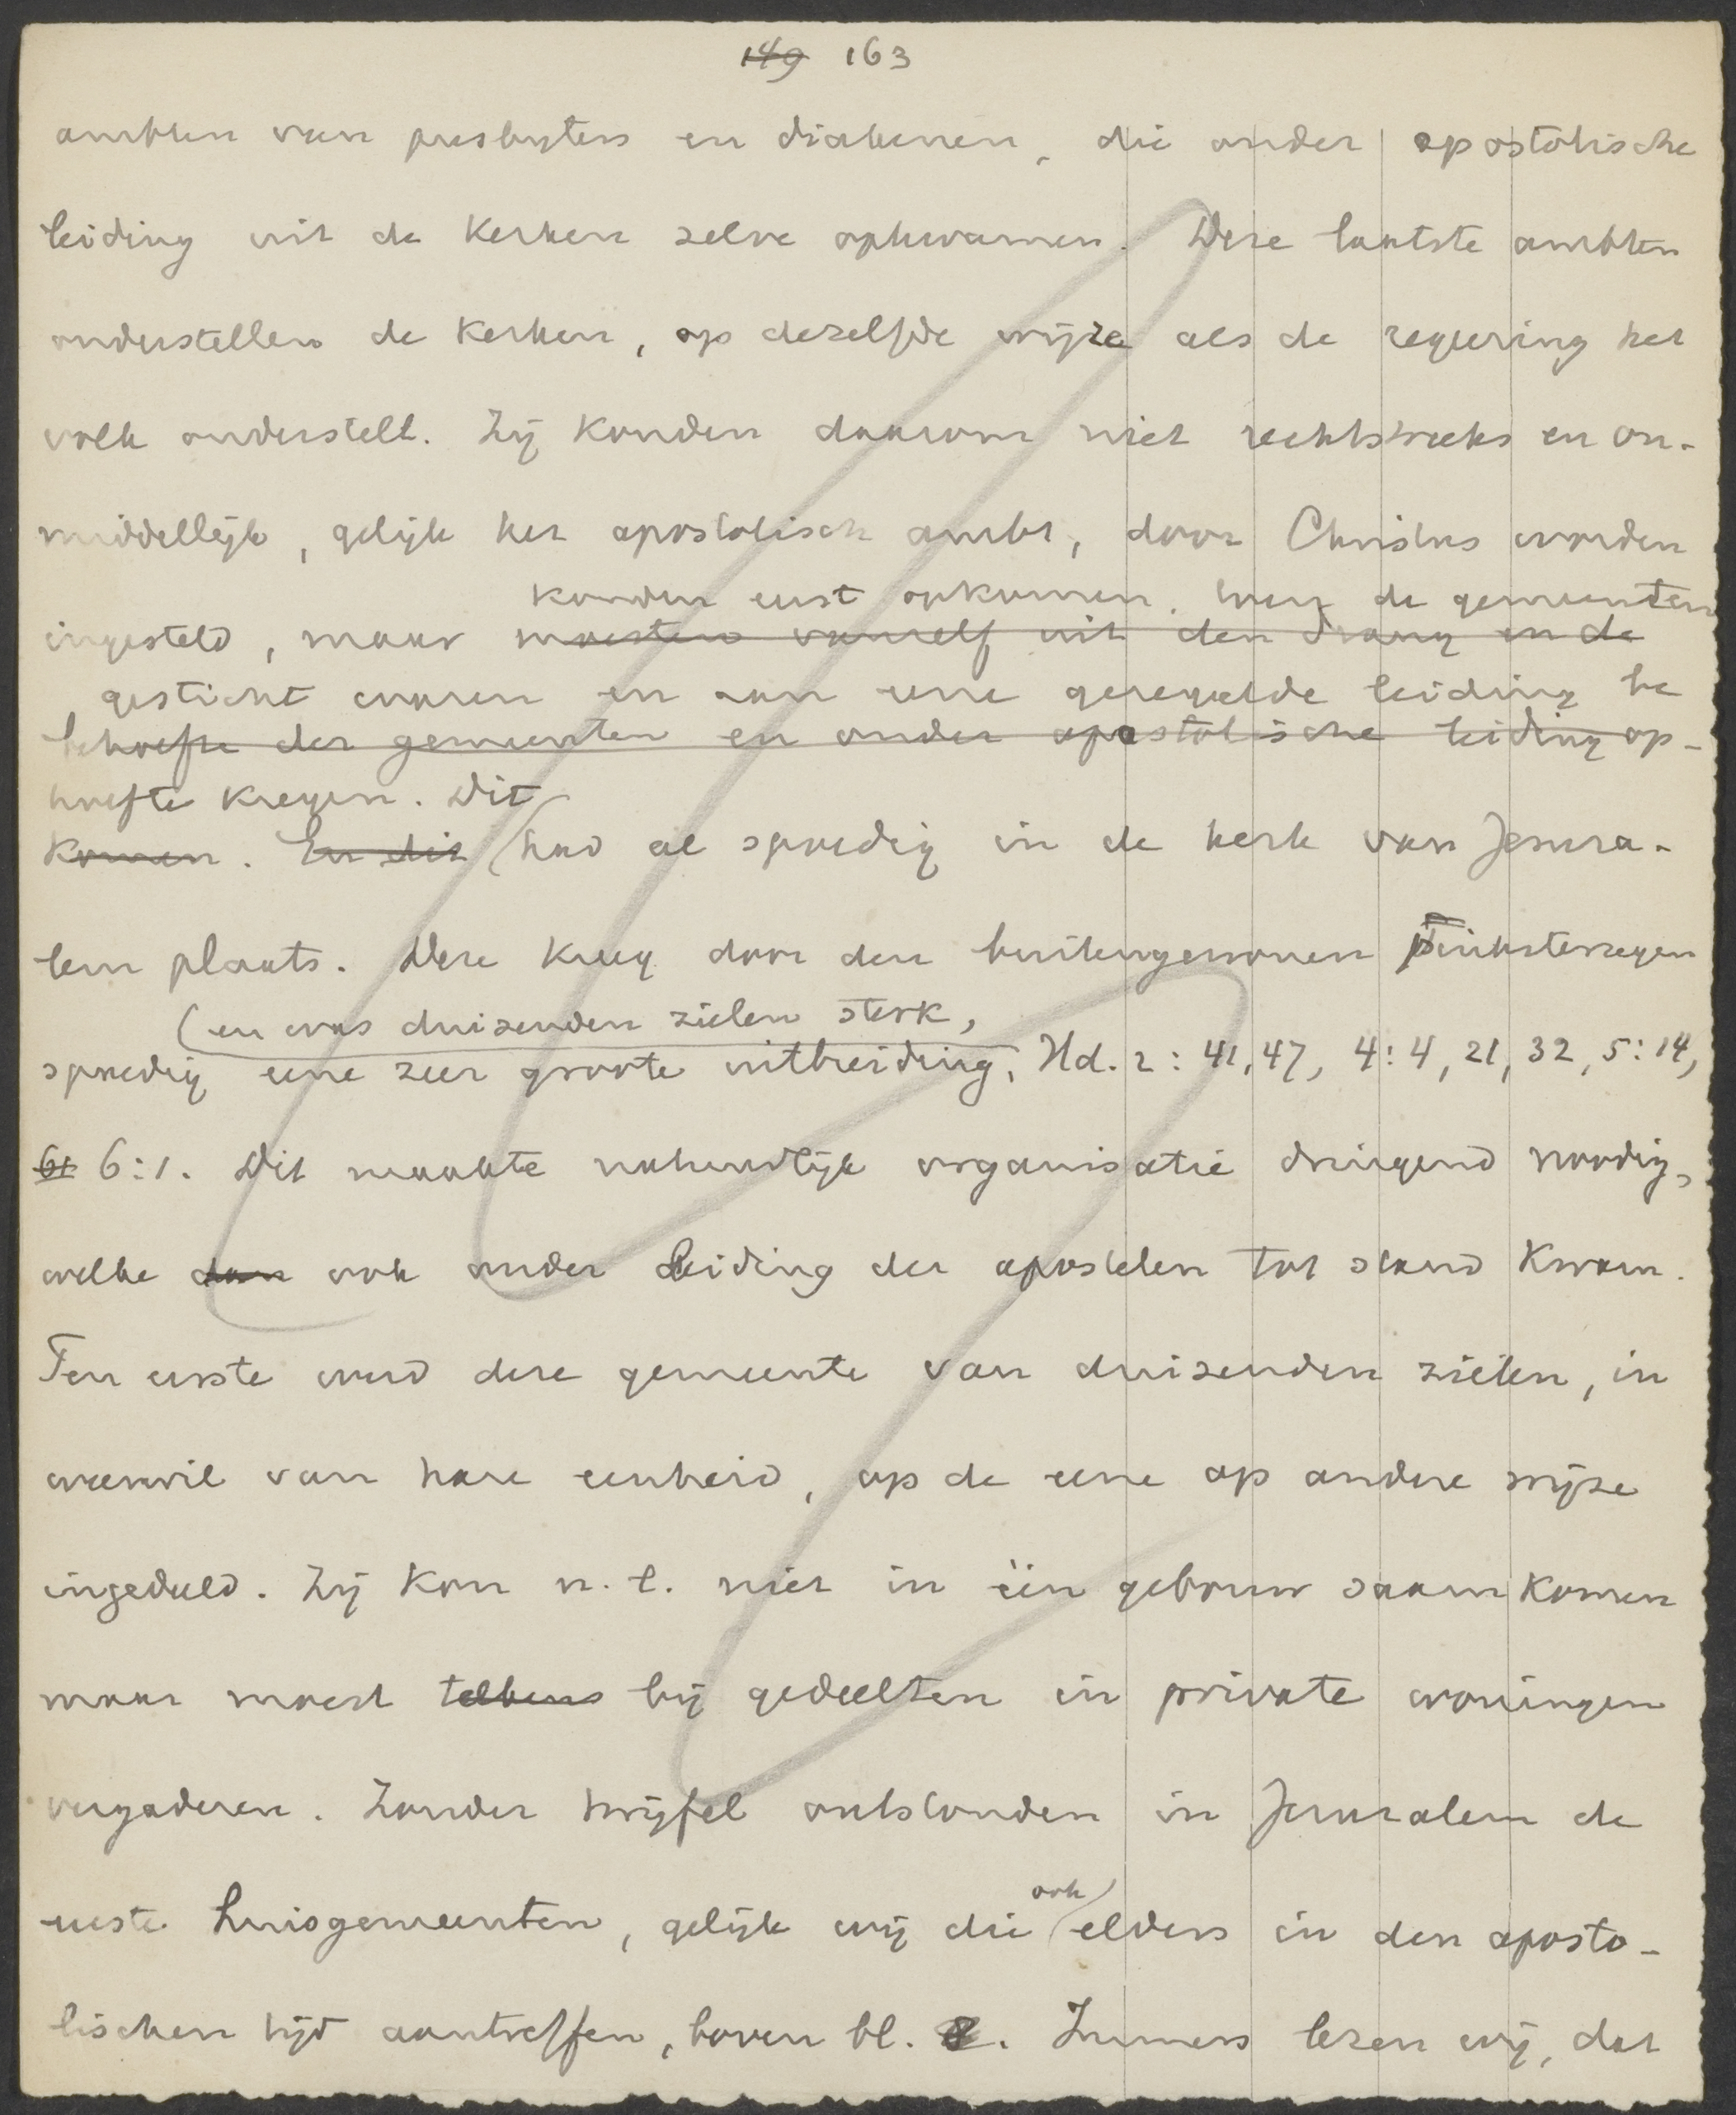 149 163
ambten van presbyters en diakenen, die onder apostolische
leiding uit de kerken zelve opkwamen. Deze laatste ambten
onderstellen de kerken, op dezelfde wijze als de regeering het
volk onderstelt. Zij konden daarom niet rechtstreeks en on-
middellijk, gelijk het apostolisch ambt, door Christus worden
konden eerst opkomen, toen de gemeenten
ingesteld, maar moesten vanzelf uit den drang en de
gesticht waren en aan eene geregelde leiding be
behoefte der gemeenten en onder apostolische leiding op-
hoefte kregen. Dit
komen. En dit had al spoedig in de kerk van Jeruza-
lem plaats. Deze kreeg door den buitengewonen Pinksterzegen
(en was duizenden zielen sterk,
spoedig eene zeer groote uitbreiding, Hd. 2:41, 47, 4:4, 21, 32, 5:14,
61 6:1. Dit maakte natuurlijk organisatie dringend noodig,
welke dan ook onder leiding der apostelen tot stand kwam.
Ten eerste werd deze gemeente van duizenden zielen, in
weerwil van hare eenheid, op de eene op andere wijze
ingedeeld. Zij kon n.l. niet in één gebouw saam komen
maar moest telkens bij gedeelten in private woningen
vergaderen. Zonder twijfel ontstonden in Jeruzalem de
eerste huisgemeenten, gelijk wij die elders in den aposto-
ook
lischen tijd aantreffen, boven bl. . Immers lezen wij, dat